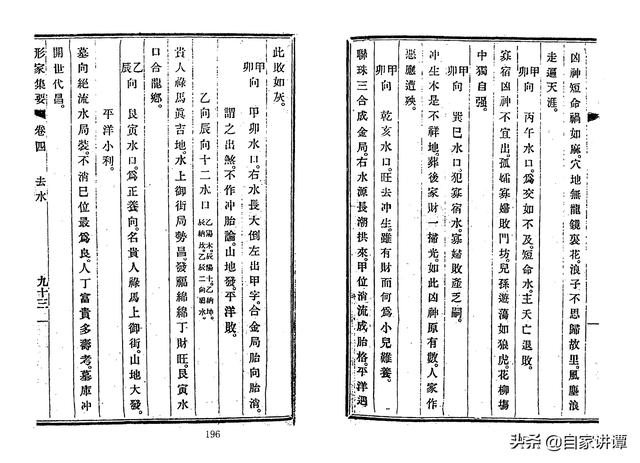 凶神短命禍如麻。穴地無龍鏡裏花。浪子不思歸故里。風塵浪
走遍天涯。
甲卯向 丙午水口。爲交如不及。短命水。主夭亡退敗。
寡宿凶神不宜出。孤孀寡婦敗門坊。兒孫遊蕩如狼虎。花柳塲
中獨自强。
甲卯向 巽巳水口。犯寡宿水。寡婦敗產乏嗣。
冲生木是不祥地。葬後家財一掃光。如此凶神原有數。人家作
惡應遭殃。
甲卯向 乾亥水口。旺去冲生。雖有財而何爲。小兒難養。
聯珠三合成金局。右水源長潮拱來。甲位消流成胎格。平洋遇
此敗如灰。
甲卯向 甲卯水口。右水長大倒左出甲字。合金局胎向胎消。
謂之出煞。不作冲胎論。山地發。平洋敗。
乙向辰向十二水口
貴人祿馬眞吉地。水上御街局勢昌。發福綿綿丁財旺。艮寅水
口合龍鄉。
乙辰向 艮寅水口。爲正養向。名貴人祿馬上御街。山地大發。
平洋小利。
墓向絕流水局裝。不消巳位最爲良。人丁富貴多壽考。墓庫冲
開世代昌。
形家集要 卷四 去水 九十三
196
头条 @自家讲谭